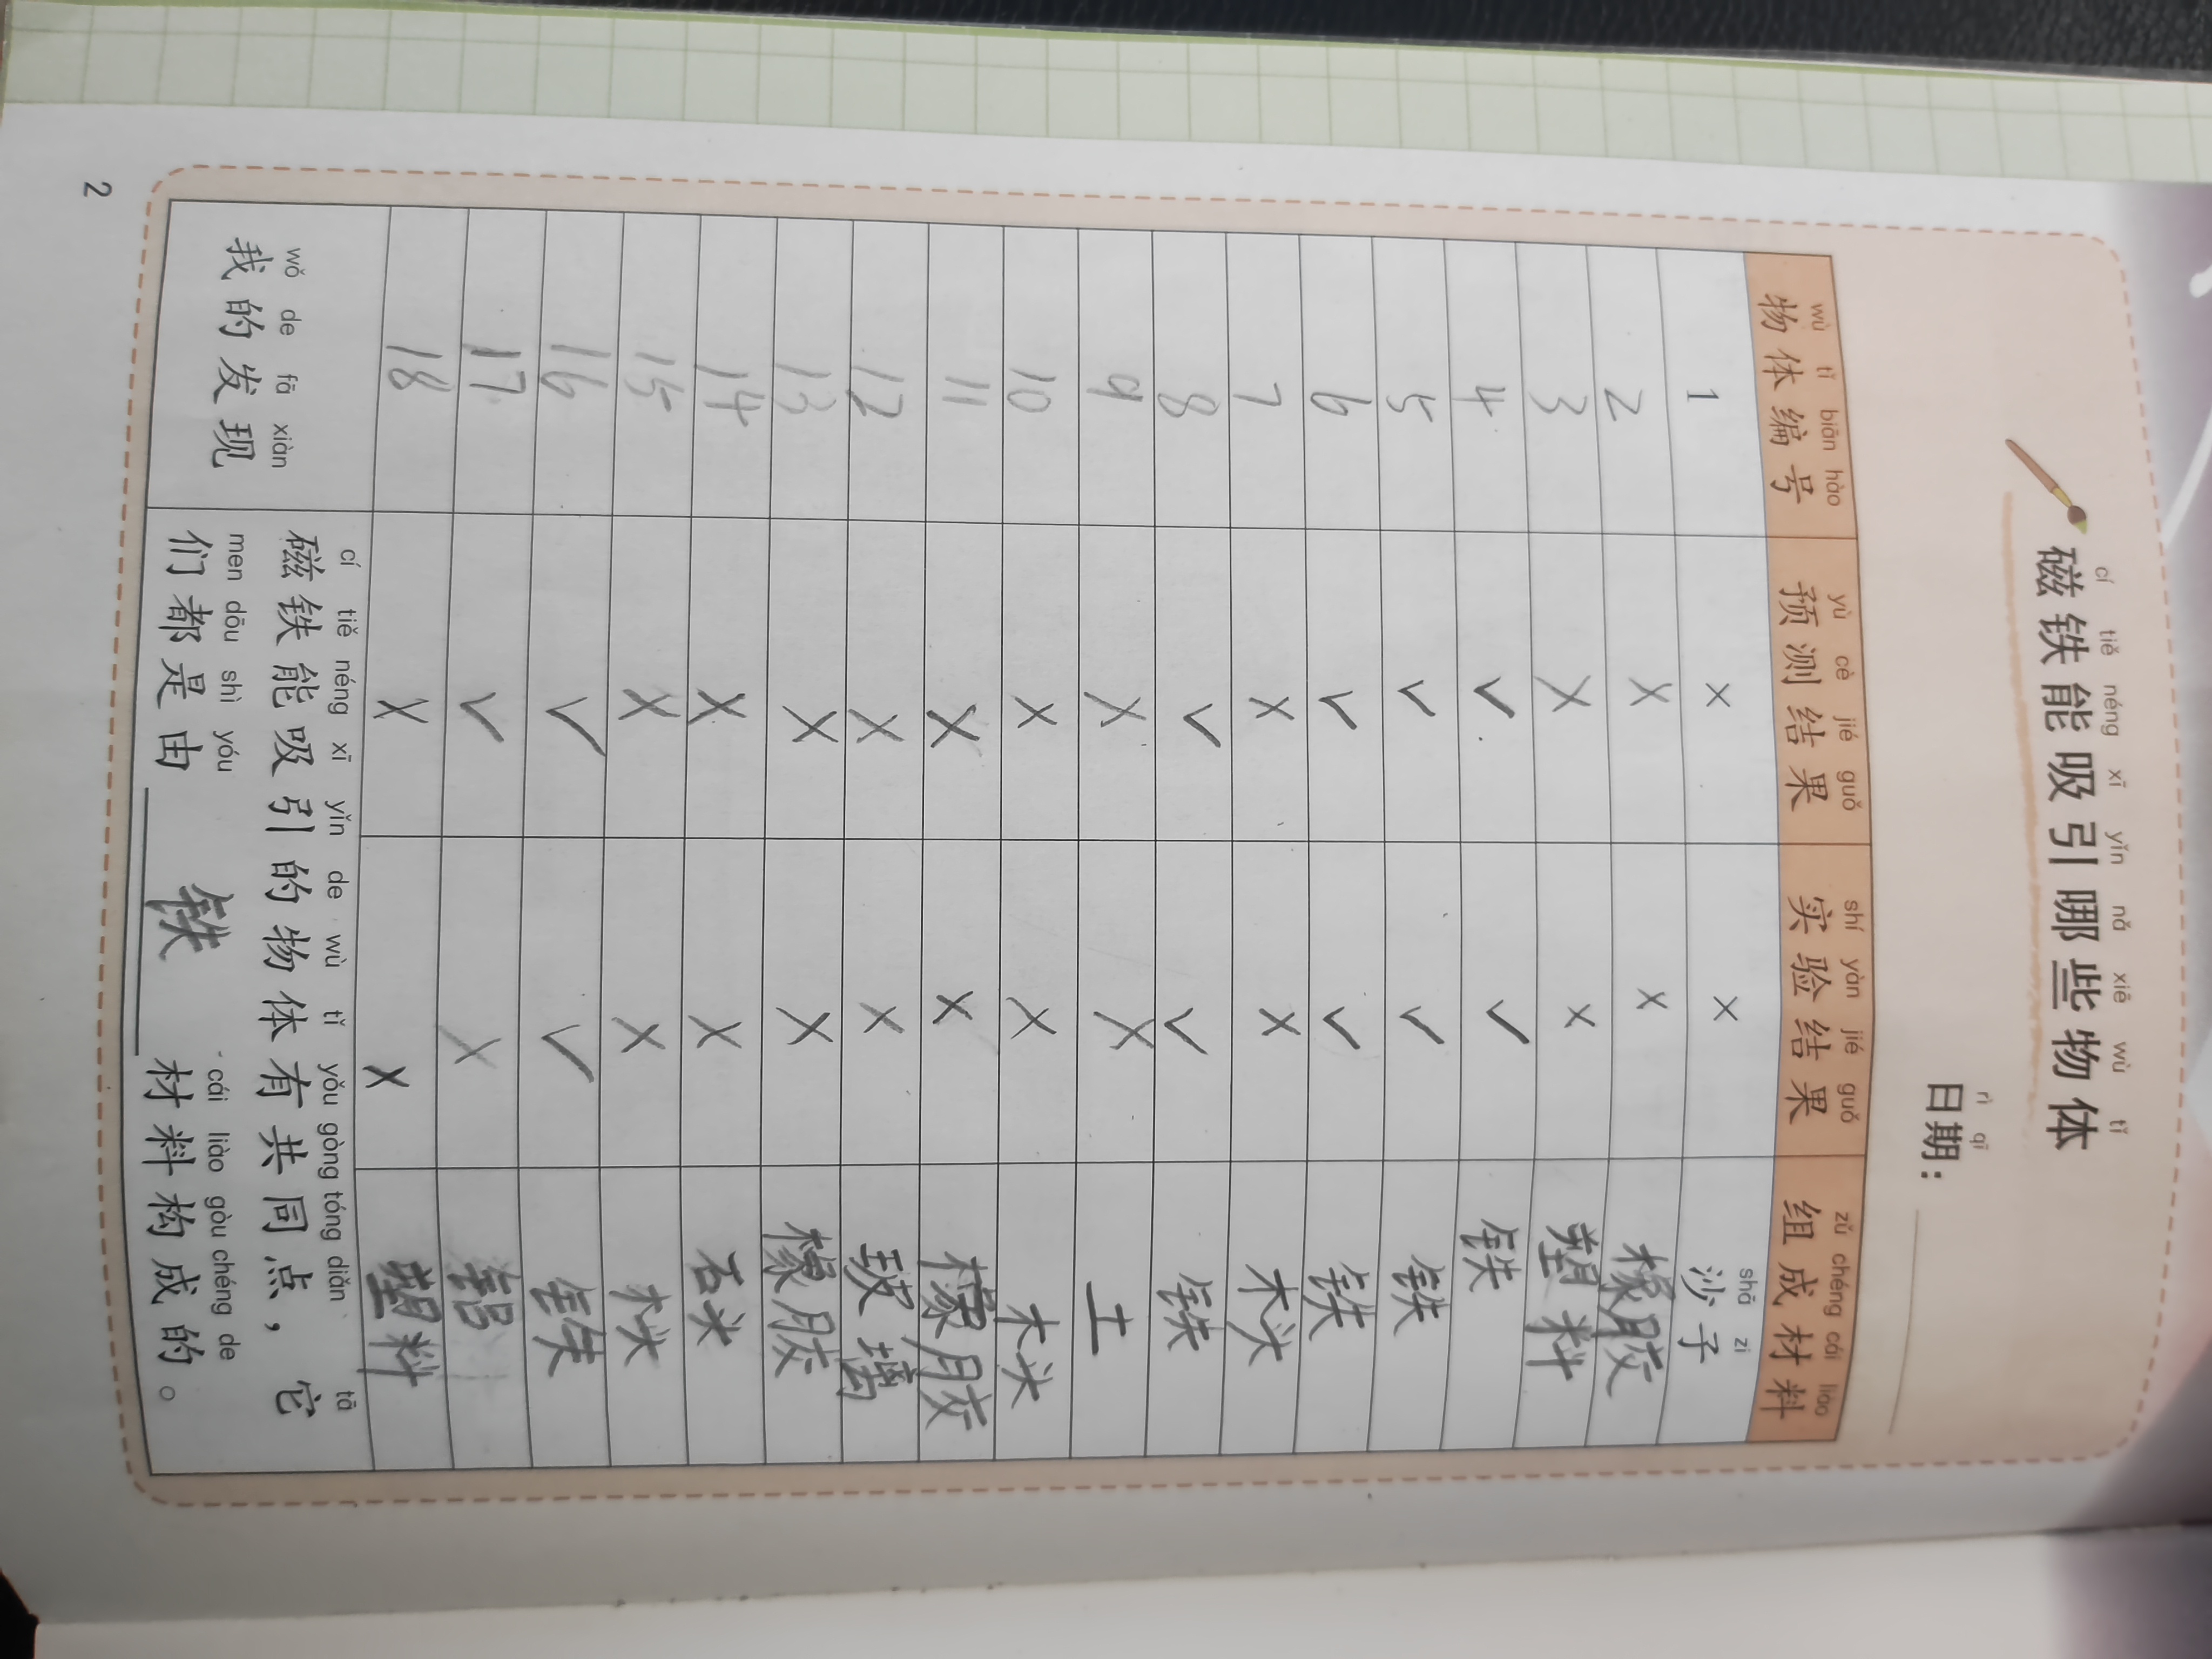 cí tiě néng xī yǐn nǎ xiē wù tǐ
磁铁能吸引哪些物体
rì qī
日期：
wù tǐ biān hào yù cè jié guǒ shí yàn jié guǒ zǔ chéng cái liào
物体编号 预测结果 实验结果 组成材料
shā zi
1 × × 沙子
2 × × 橡胶
3 × × 塑料
4 ✓ ✓ 铁
5 ✓ ✓ 铁
6 ✓ ✓ 铁
7 × × 木头
8 ✓ ✓ 铁
9 × × 土
10 × × 木头
11 × × 橡胶
12 × × 玻璃
13 × × 橡胶
14 × × 石头
15 × × 木头
16 ✓ ✓ 铁
17 ✓ × 铝
18 × × 塑料
wǒ de fā xiàn
我的发现
cí tiě néng xī yǐn de wù tǐ yǒu gòng tóng diǎn tā
磁铁能吸引的物体有共同点，它
men dōu shì yóu cái liào gòu chéng de
们都是由 铁 材料构成的。
2